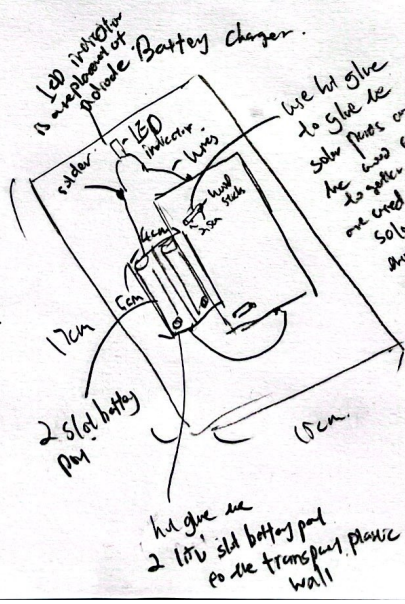 LED indicator
is a replacement of
a diode
Battery charger.
LED
indicator
wires
solder
use hot glue
to glue the
solar
the wood
together
are used
wood
sticks
4cm
6cm
17cm
2 slot battery
15cm.
hot glue the
2 slot battery
to the transparent plastic
wall